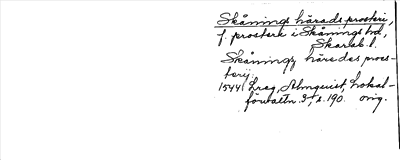 Skånings härads prosteri,
f. prosteri i Skånings hd,
Skarab. l.
Skånings häredes pros-
terij
1544 Lreg, Almquist, Lokal-
förvaltn. 3, s. 190. orig.